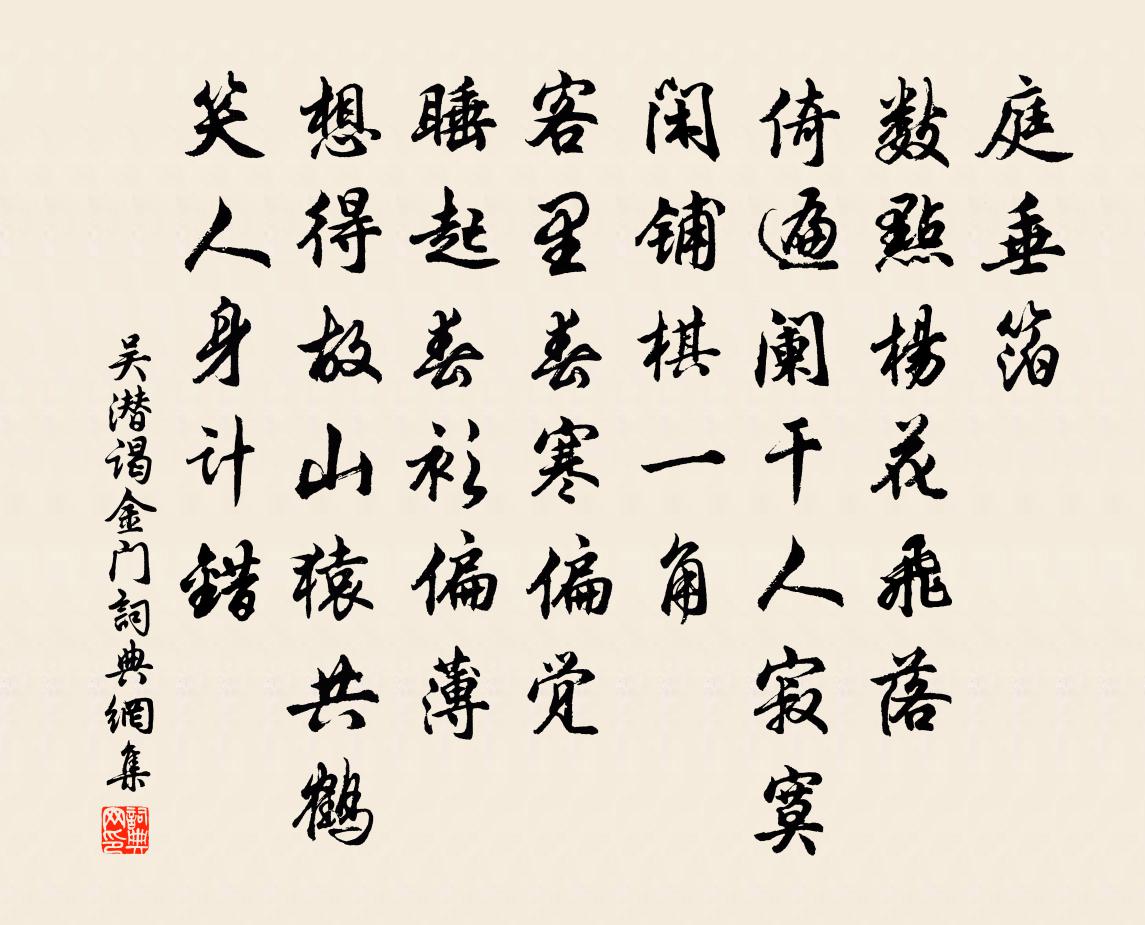 庭垂箔
数點楊花飛落
倚遍阑干人寂寞
闲铺棋一角
客里春寒偏觉
睡起春衫偏薄
想得故山猿共鶴
笑人身计錯
吴潜谒金门詞典網集
詞典网印